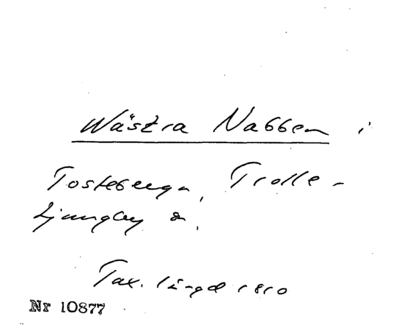 Wästra Nabben i
Tosteberga, Trolle-
Ljungby s.
Tax. längd 1810
Nr 10877